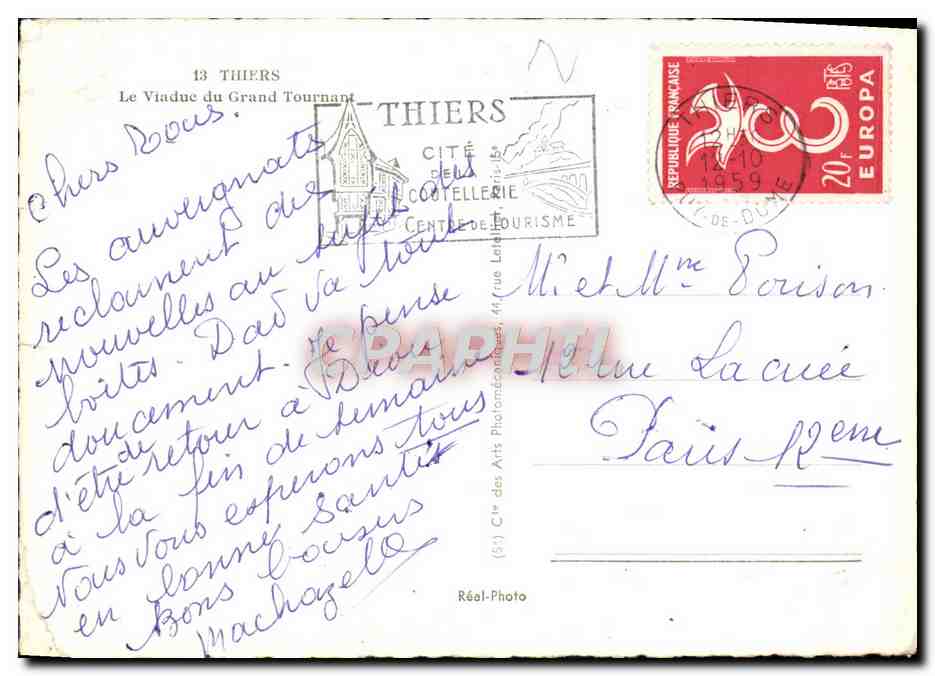 13 THIERS
Le Viaduc du Grand Tournant
THIERS
CITÉ
DE LA
COUTELLERIE
CENTRE DE TOURISME
REPUBLIQUE FRANÇAISE
20F
EUROPA
THIERS
12H
12-10
1959
PUY-DE-DOME
Chers Tous.
Les auvergnats
reclament des
nouvelles au sujet des
boites. Dad va tout
doucement. Je pense
d'être de retour à
à la fin de semaine
Nous vous esperons tous
en bonne santé
Bons baisers
Mr et Mme Porison
12 rue Lacuée
Paris 12eme
(51) Cie des Arts Photomécaniques, 44, rue Letellier, Paris-15e
Réal-Photo
CPAPHIL